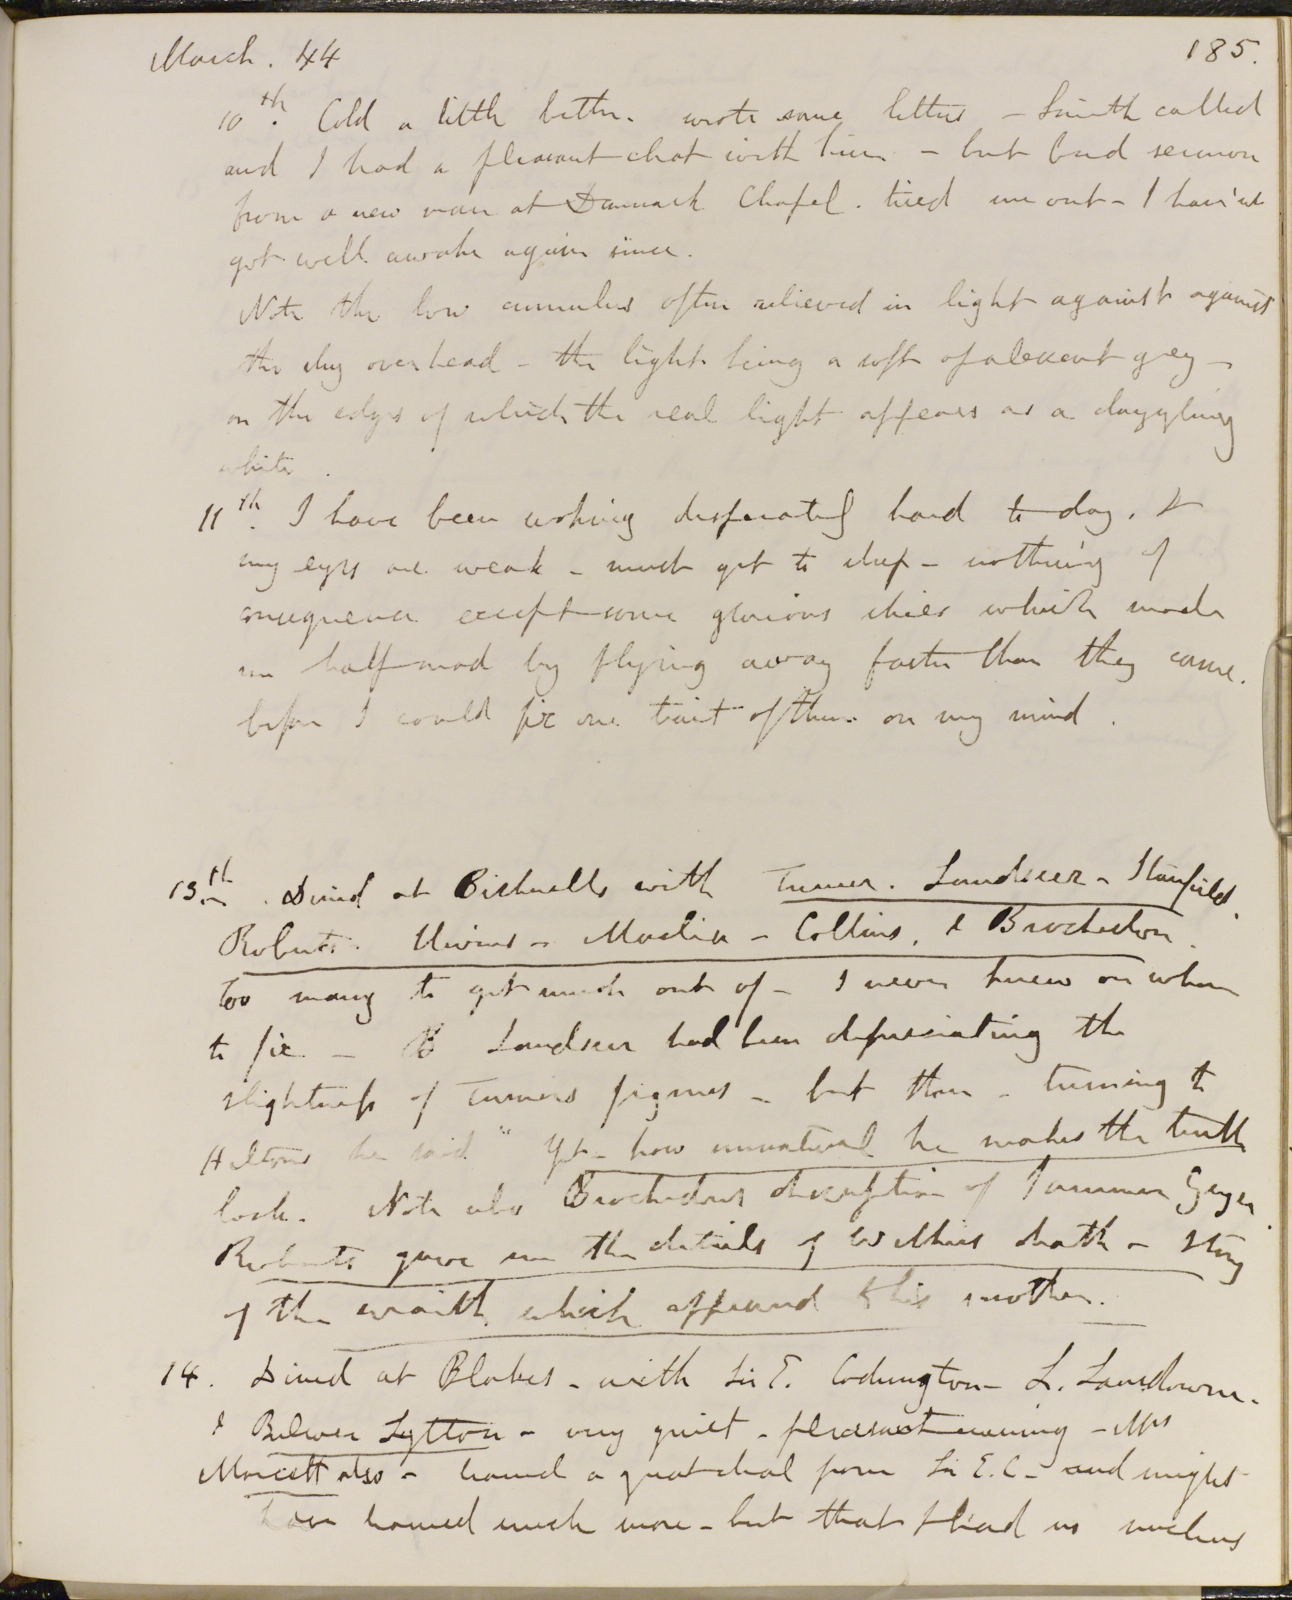 March. 44
185.
10th. Cold a little better. wrote some letters - Smith called
and I had a pleasant chat with him - but bad sermon
from a new man at Denmark Chapel. tired me out - I hav'nt
got well awake again since.
Note the low cumulus often relieved in light against against
the sky overhead - the light being a soft opalescent grey -
on the edges of which the real light appears as a dazzling
white.
11th. I have been working desperately hard to day. &
my eyes are weak - must get to sleep - nothing of
consequence except some glorious skies which made
me half mad by flying away faster than they came.
before I could fix one trait of them on my mind.
13th. Dined at Bicknells with Turner. Landseer - Stanfield.
Roberts. Uwins - Maclise - Collins. & Brockedon.
Too many to get much out of - I never knew on whom
to fix - Landseer had been depreciating the
slightness of Turners figures - but then - turning to
he said " Yet - how unnatural he makes the truth
look. Note also Brockedons description of
Roberts gave me the details of Wilkies death - story
of the wraith which appeared to his mother.
14. Dined at Blakes - with Sir E. Codrington - L. Lansdowne.
& Bulwer Lytton - very quiet - pleasant evening - Mrs
Marcett also - learned a great deal from Sir E. C. - and might
have learned much more - but that I had no nucleus